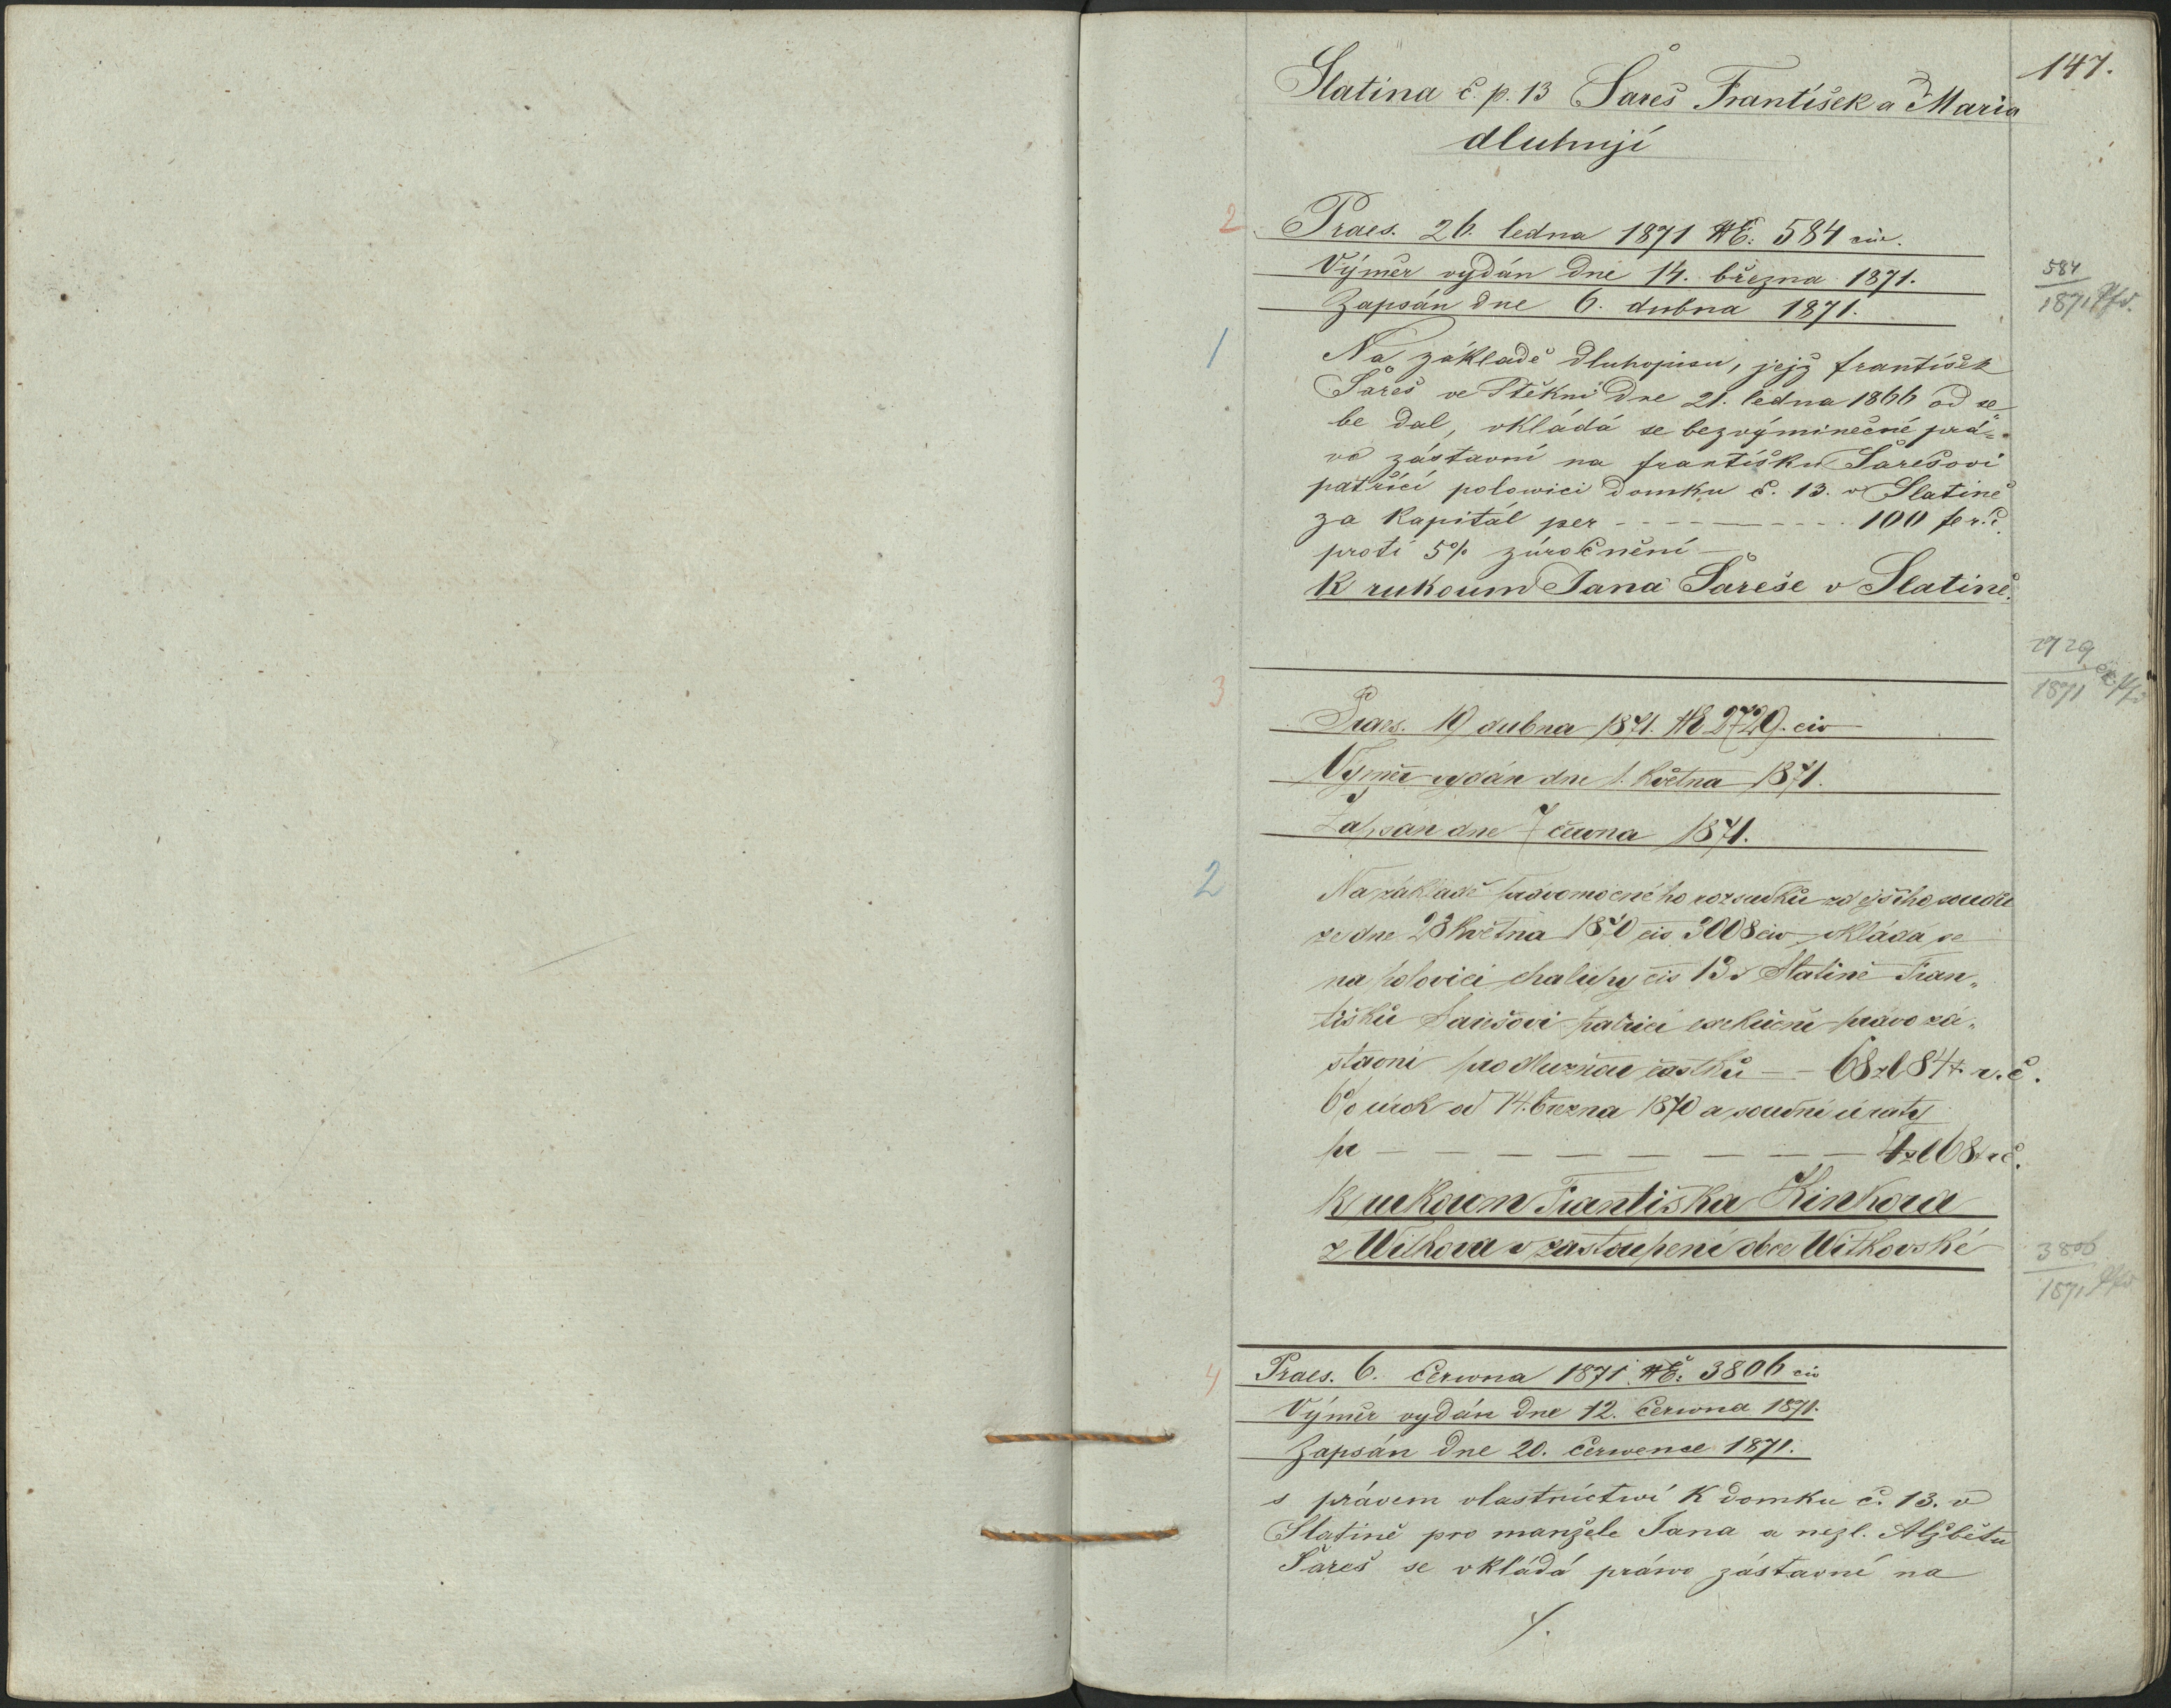 147.
Slatina č. p. 13 Šareš František a Maria
dluhují
2 Praes. 26. ledna 1871 NE: 584 civ.
Výměr vydán dne 14. března 1871.
584
1871 Pfd.
Zapsán dne 6. dubna 1871.
1 Na základě dluhopisu, jejž frantíšek
Šareš ve Štěkni dne 21. ledna 1866 od se
be dal, vkládá se bezvýminečné prá=
vo zástavní na frantíšku Šarešovi
patřící polowici domku č. 13. v Slatině
za Kapitál per - - - - - - - - 100 fe r. č
proti 5% zúročnění
K rukoum Jana Šareše v Slatině.
2729
1871
3 Praes. 19 dubna 1871. NE 2729. civ
Výměr vydán dne 1. května 1871.
Zapsán dne 7 června 1871.
2 Na základě právomocného rozsudku zdejšího soudu
ze dne 23 května 1870 čis 3008 civ vkládá se
na polovici chalupy čis 13 v Slatině Fran„
tišku Šarešovi patřící exekuční právo zá„
stavní pro dlužnou částku — - 68 zl 84 x r. č.
6% úrok od 14. března 1870 a soudní útraty
pr — — — — — — — — 4 zl 68 x r č.
K rukoum Františka Kinkora
z Witkova v zastoupení obce Witkovské
3806
1871 Pfd
4 Praes. 6. Června 1871. NE: 3806 civ
Výměr vydán dne 12. Června 1871.
Zapsán dne 20. Července 1871.
s právem vlastnictwí K domku č. 13. v
Slatině pro manžele Jana a nezl. Alžbětu
Šareš se vkládá práwo zástavní na
./.